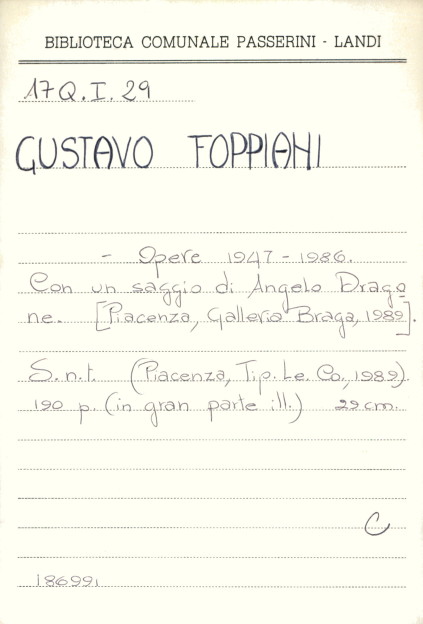 BIBLIOTECA COMUNALE PASSERINI - LANDI
17Q.I.29
GUSTAVO FOPPIANI
- Opere 1947-1986.
Con un saggio di Angelo Drago
ne. [Piacenza, Galleria Braga, 1989].
S.n.t. (Piacenza, Tip. Le. Co., 1989).
190 p. (in gran parte ill.) 29 cm.
C
186991